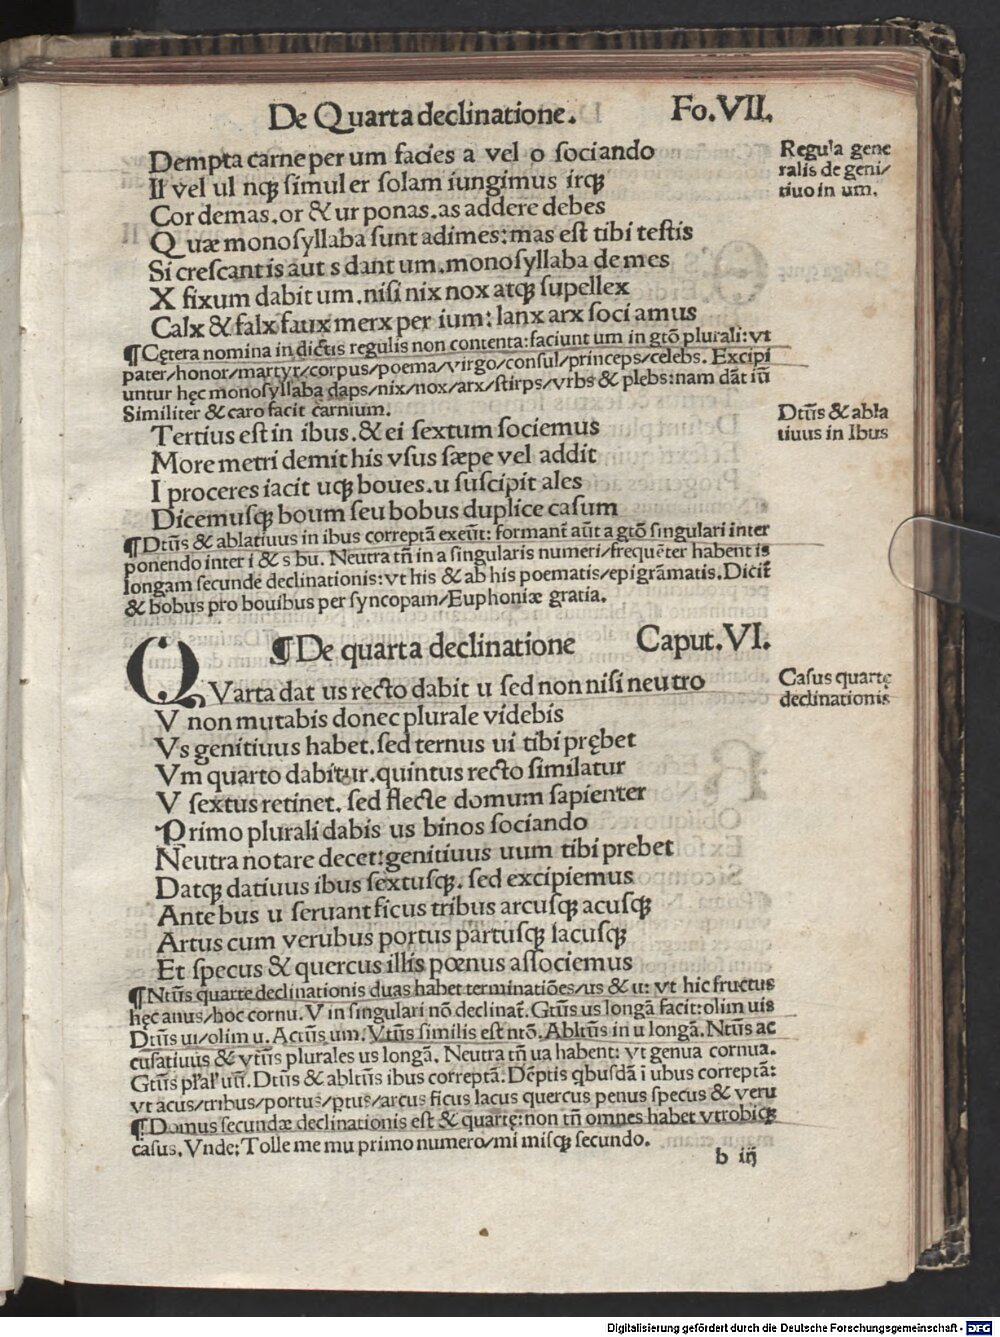 De Quarta declinatione.
Fo.VII.
Dempta carne per um facies a vel o sociando
Il vel ul nqꝫ simul er solam iungimus irqꝫ
Cor demas.or & ur ponas.as addere debes
Quæ monosyllaba sunt adimes:mas est tibi testis
Si crescant is aut s dant um.monosyllaba demes
X fixum dabit um.nisi nix nox atqꝫ supellex
Calx & falx faux merx per ium: lanx arx sociamus
Regula gene
ralis de geni/
tiuo in um.
¶Cętera nomina in dictis regulis non contenta:faciunt um in gtō plurali:vt
pater/honor/martyr/corpus/poema/virgo/consul/princeps/celebs. Excipi
untur hęc monosyllaba daps/nix/nox/arx/stirps/vrbs & plebs:nam dāt iū
Similiter & caro facit carnium.
Tertius est in ibus.& ei sextum sociemus
More metri demit his vsus sæpe vel addit
I proceres iacit ucqꝫ boues.u suscipit ales
Dicemusqꝫ boum seu bobus duplice casum
Dtūs & abla
tiuus in Ibus
¶Dtūs & ablatiuus in ibus correptā exeūt: formant̄ aūt a gtō singulari inter
ponendo inter i & s bu. Neutra tn̄ in a singularis numeri/frequēter habent is
longam secunde declinationis:vt his & ab his poematis/epigrāmatis.Dicit̄
& bobus pro bouibus per syncopam/Euphoniæ gratia.
¶De quarta declinatione
Caput.VI.
QVarta dat us recto dabit u sed non nisi neutro
V non mutabis donec plurale videbis
Vs genitiuus habet.sed ternus ui tibi prębet
Vm quarto dabitur.quintus recto similatur
V sextus retinet. sed flecte domum sapienter
Primo plurali dabis us binos sociando
Neutra notare decet:genitiuus uum tibi prebet
Datqꝫ datiuus ibus sextusqꝫ. sed excipiemus
Ante bus u seruant ficus tribus arcusqꝫ acusqꝫ
Artus cum verubus portus partusqꝫ lacusqꝫ
Et specus & quercus illis pœnus associemus
Casus quartę
declinationis
¶Ntūs quarte declinationis duas habet terminatiōes/us & u: vt hic fructus
hęc anus/hoc cornu. V in singulari nō declinat̄. Gtūs us longā facit:olim uis
Dtūs ui/olim u. Actūs um. Vtūs similis est ntō. Abltūs in u longā. Ntūs ac
cusatiuus & vtūs plurales us longā. Neutra tn̄ ua habent: vt genua cornua.
Gtūs pl'al' uū. Dtūs & abltūs ibus correptā. Dēptis qbusdā i ubus correptā:
vt acus/tribus/portus/ptus/arcus ficus lacus quercus penus specus & veru
¶Domus secundæ declinationis est & quartę:non tn̄ omnes habet vtrobiqꝫ
casus. Vnde: Tolle me mu primo numero/mi misqꝫ secundo.
b iij
Digitalisierung gefördert durch die Deutsche Forschungsgemeinschaft - DFG